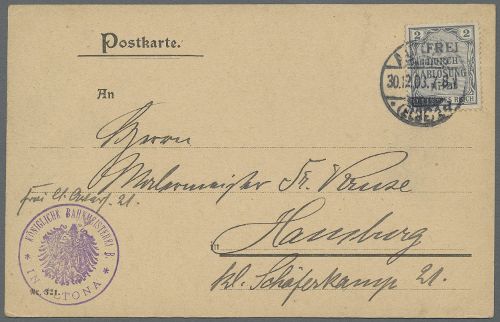 Postkarte.
2 2
FREI
DURCH
ABLÖSUNG
REICH
30.12.03. 7-8
(ELBE)
An
Herrn
Malermeister Fr. Kruse
Frei lt. 21.
in Hamburg
kl. Schäferkamp 21.
KÖNIGLICHE BAHNMEISTEREI B.
* IN ALTONA *